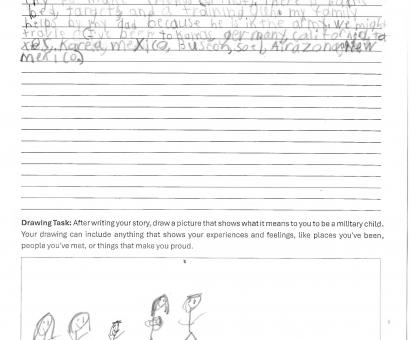 bed, targets and a training my family
helps by my dad because he is in the army. We might
travle I've been to germany
xas, Korea, mexico, Buscon, soel, Airazona New
mexico.
Drawing Task: After writing your story, draw a picture that shows what it means to you to be a military child.
Your drawing can include anything that shows your experiences and feelings, like places you've been,
people you've met, or things that make you proud.